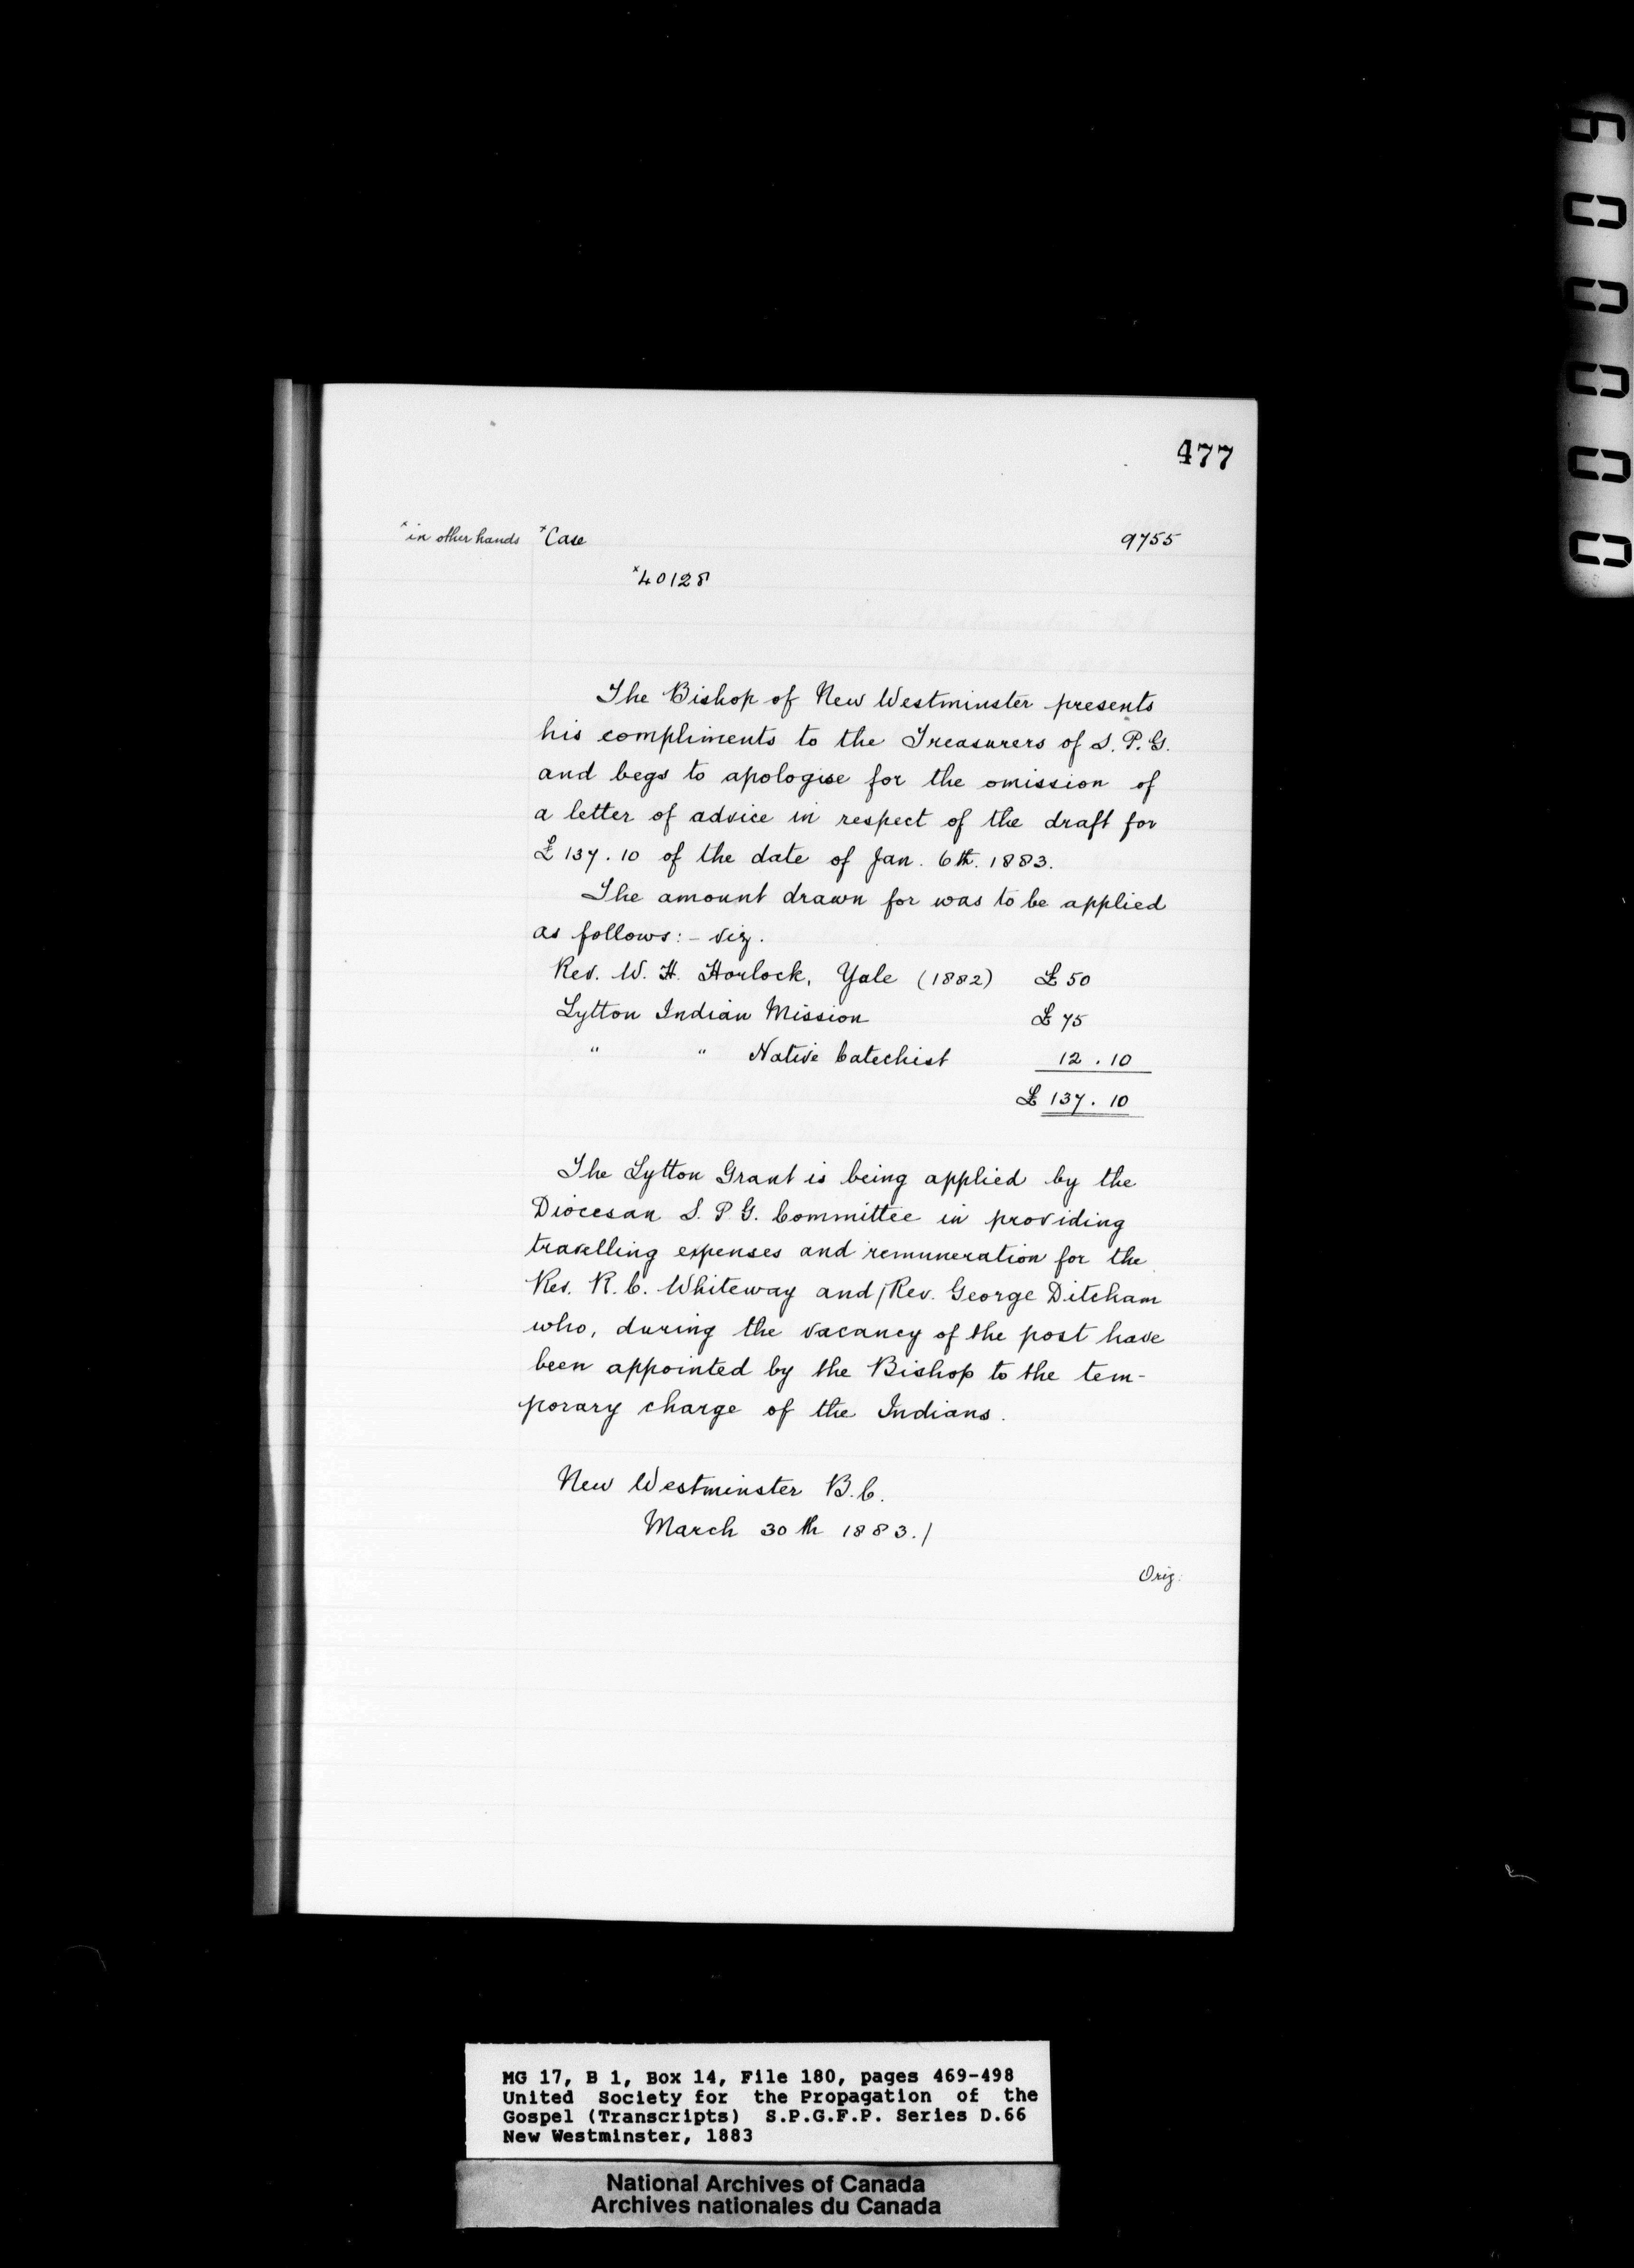 477
*in other hands *Case 9755
*40128
The Bishop of New Westminster presents
his compliments to the Treasurers of S. P. G.
and begs to apologise for the omission of
a letter of advice in respect of the draft for
£137.10 of the date of Jan. 6th. 1883.
The amount drawn for was to be applied
as follows:- viz.
Rev. W. H. Horlock, Yale (1882) £50
Lytton Indian Mission £75
" " Native Catechist 12.10
£137.10
The Lytton Grant is being applied by the
Diocesan S. P. G. Committee in providing
travelling expenses and remuneration for the
Rev. R. C. Whiteway and/Rev. George Ditcham
who, during the vacancy of the post have
been appointed by the Bishop to the tem-
porary charge of the Indians.
New Westminster B.C.
March 30th 1883./
Orig:
MG 17, B 1, Box 14, File 180, pages 469-498
United Society for the Propagation of the
Gospel (Transcripts) S.P.G.F.P. Series D.66
New Westminster, 1883
National Archives of Canada
Archives nationales du Canada